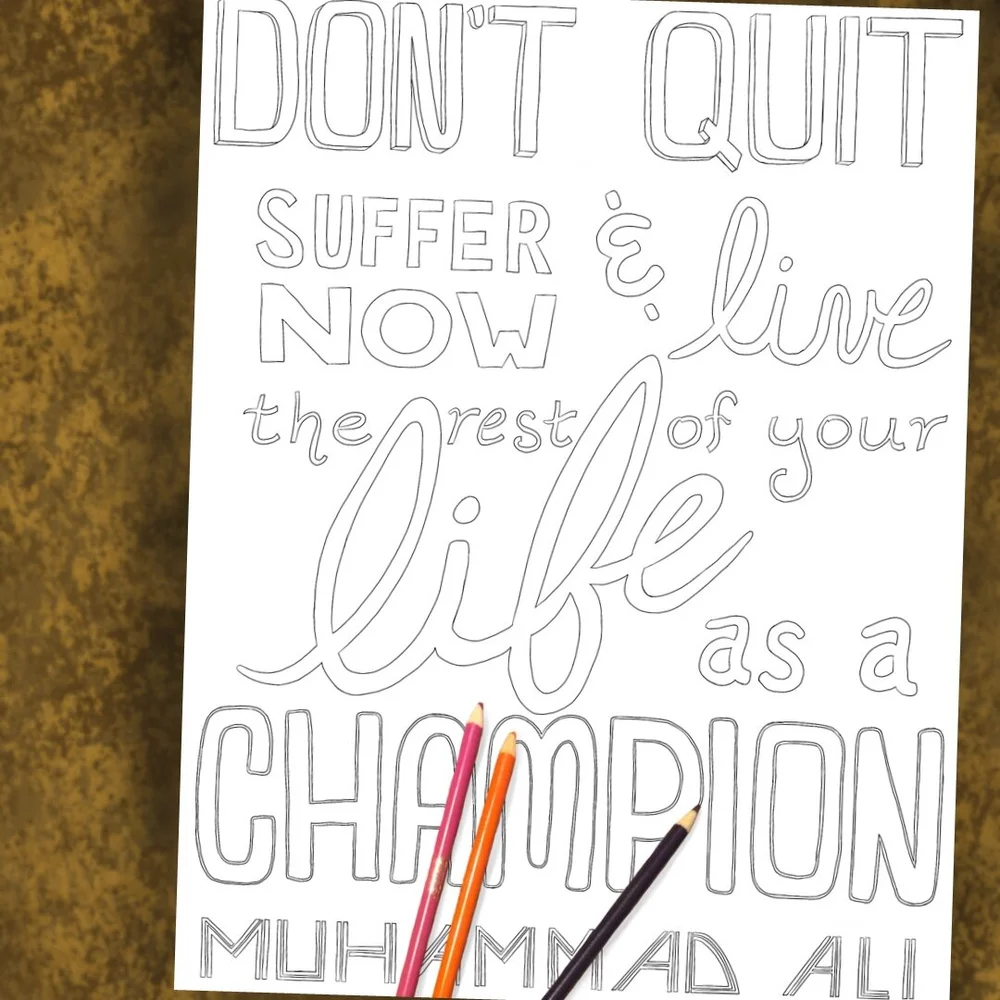 DON'T QUIT
SUFFER
NOW & live
the rest of your
life
as a
CHAMPION
MUHAMMAD ALI